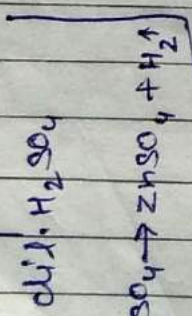 dil. H₂SO₄
SO₄ → ZnSO₄ + H₂↑